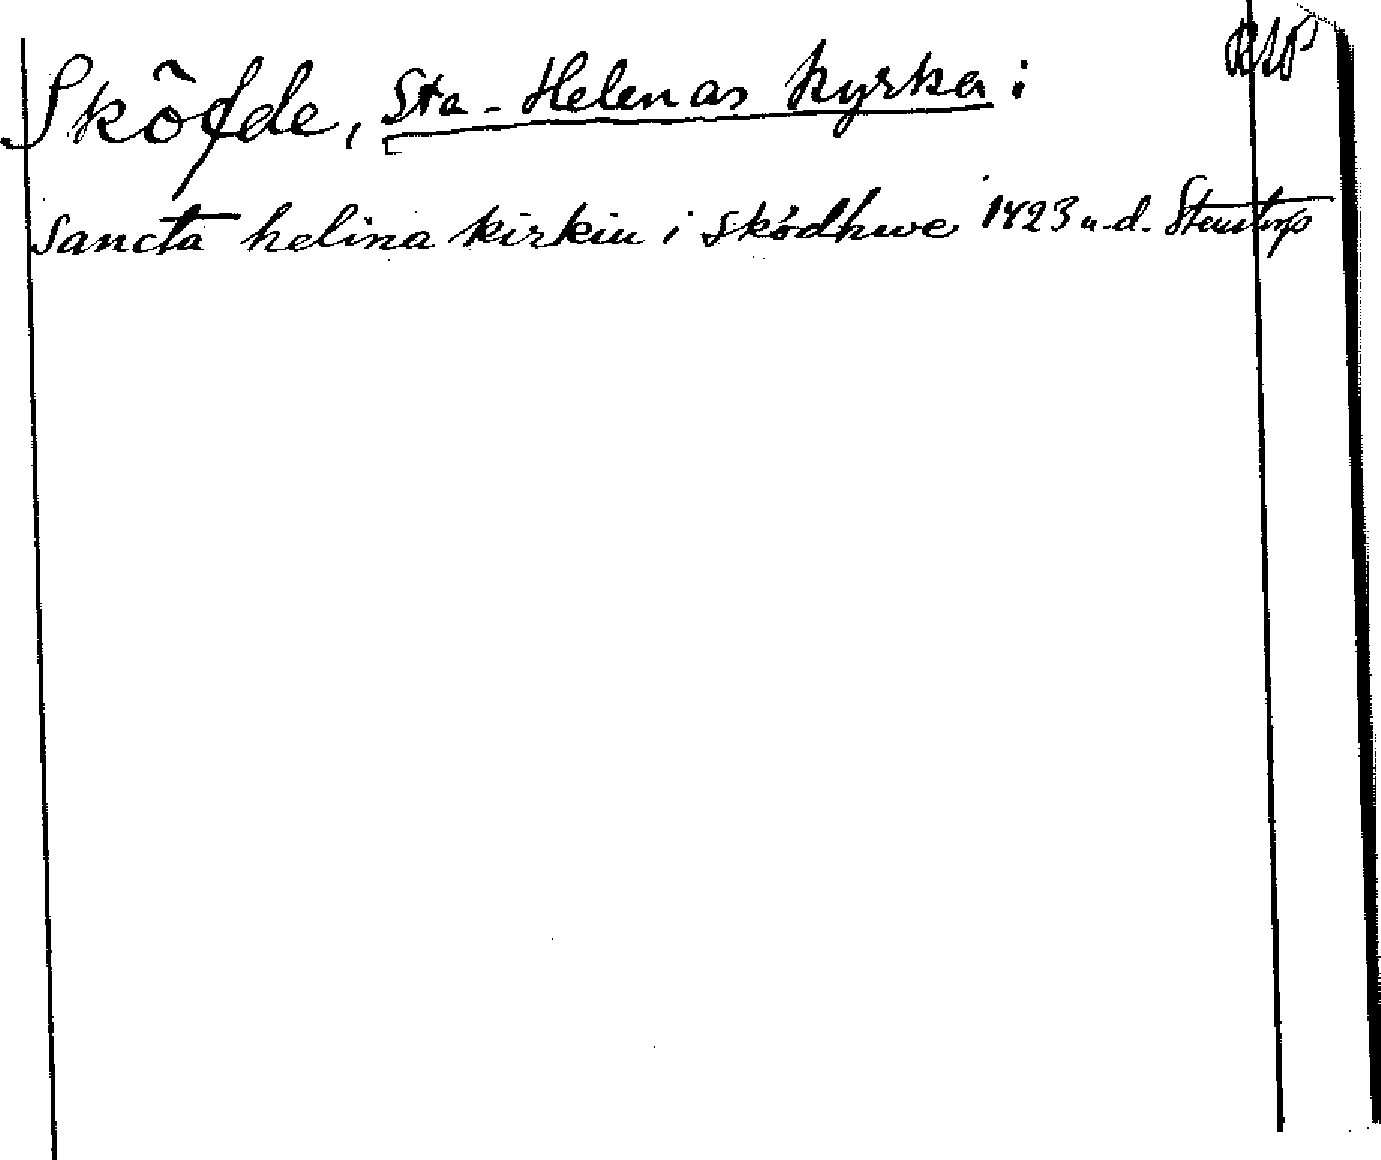 Sköfde, Sta-Helenas kyrka i
sancta helina kirkiu i skódhwe 1423 u.d. Stentorp